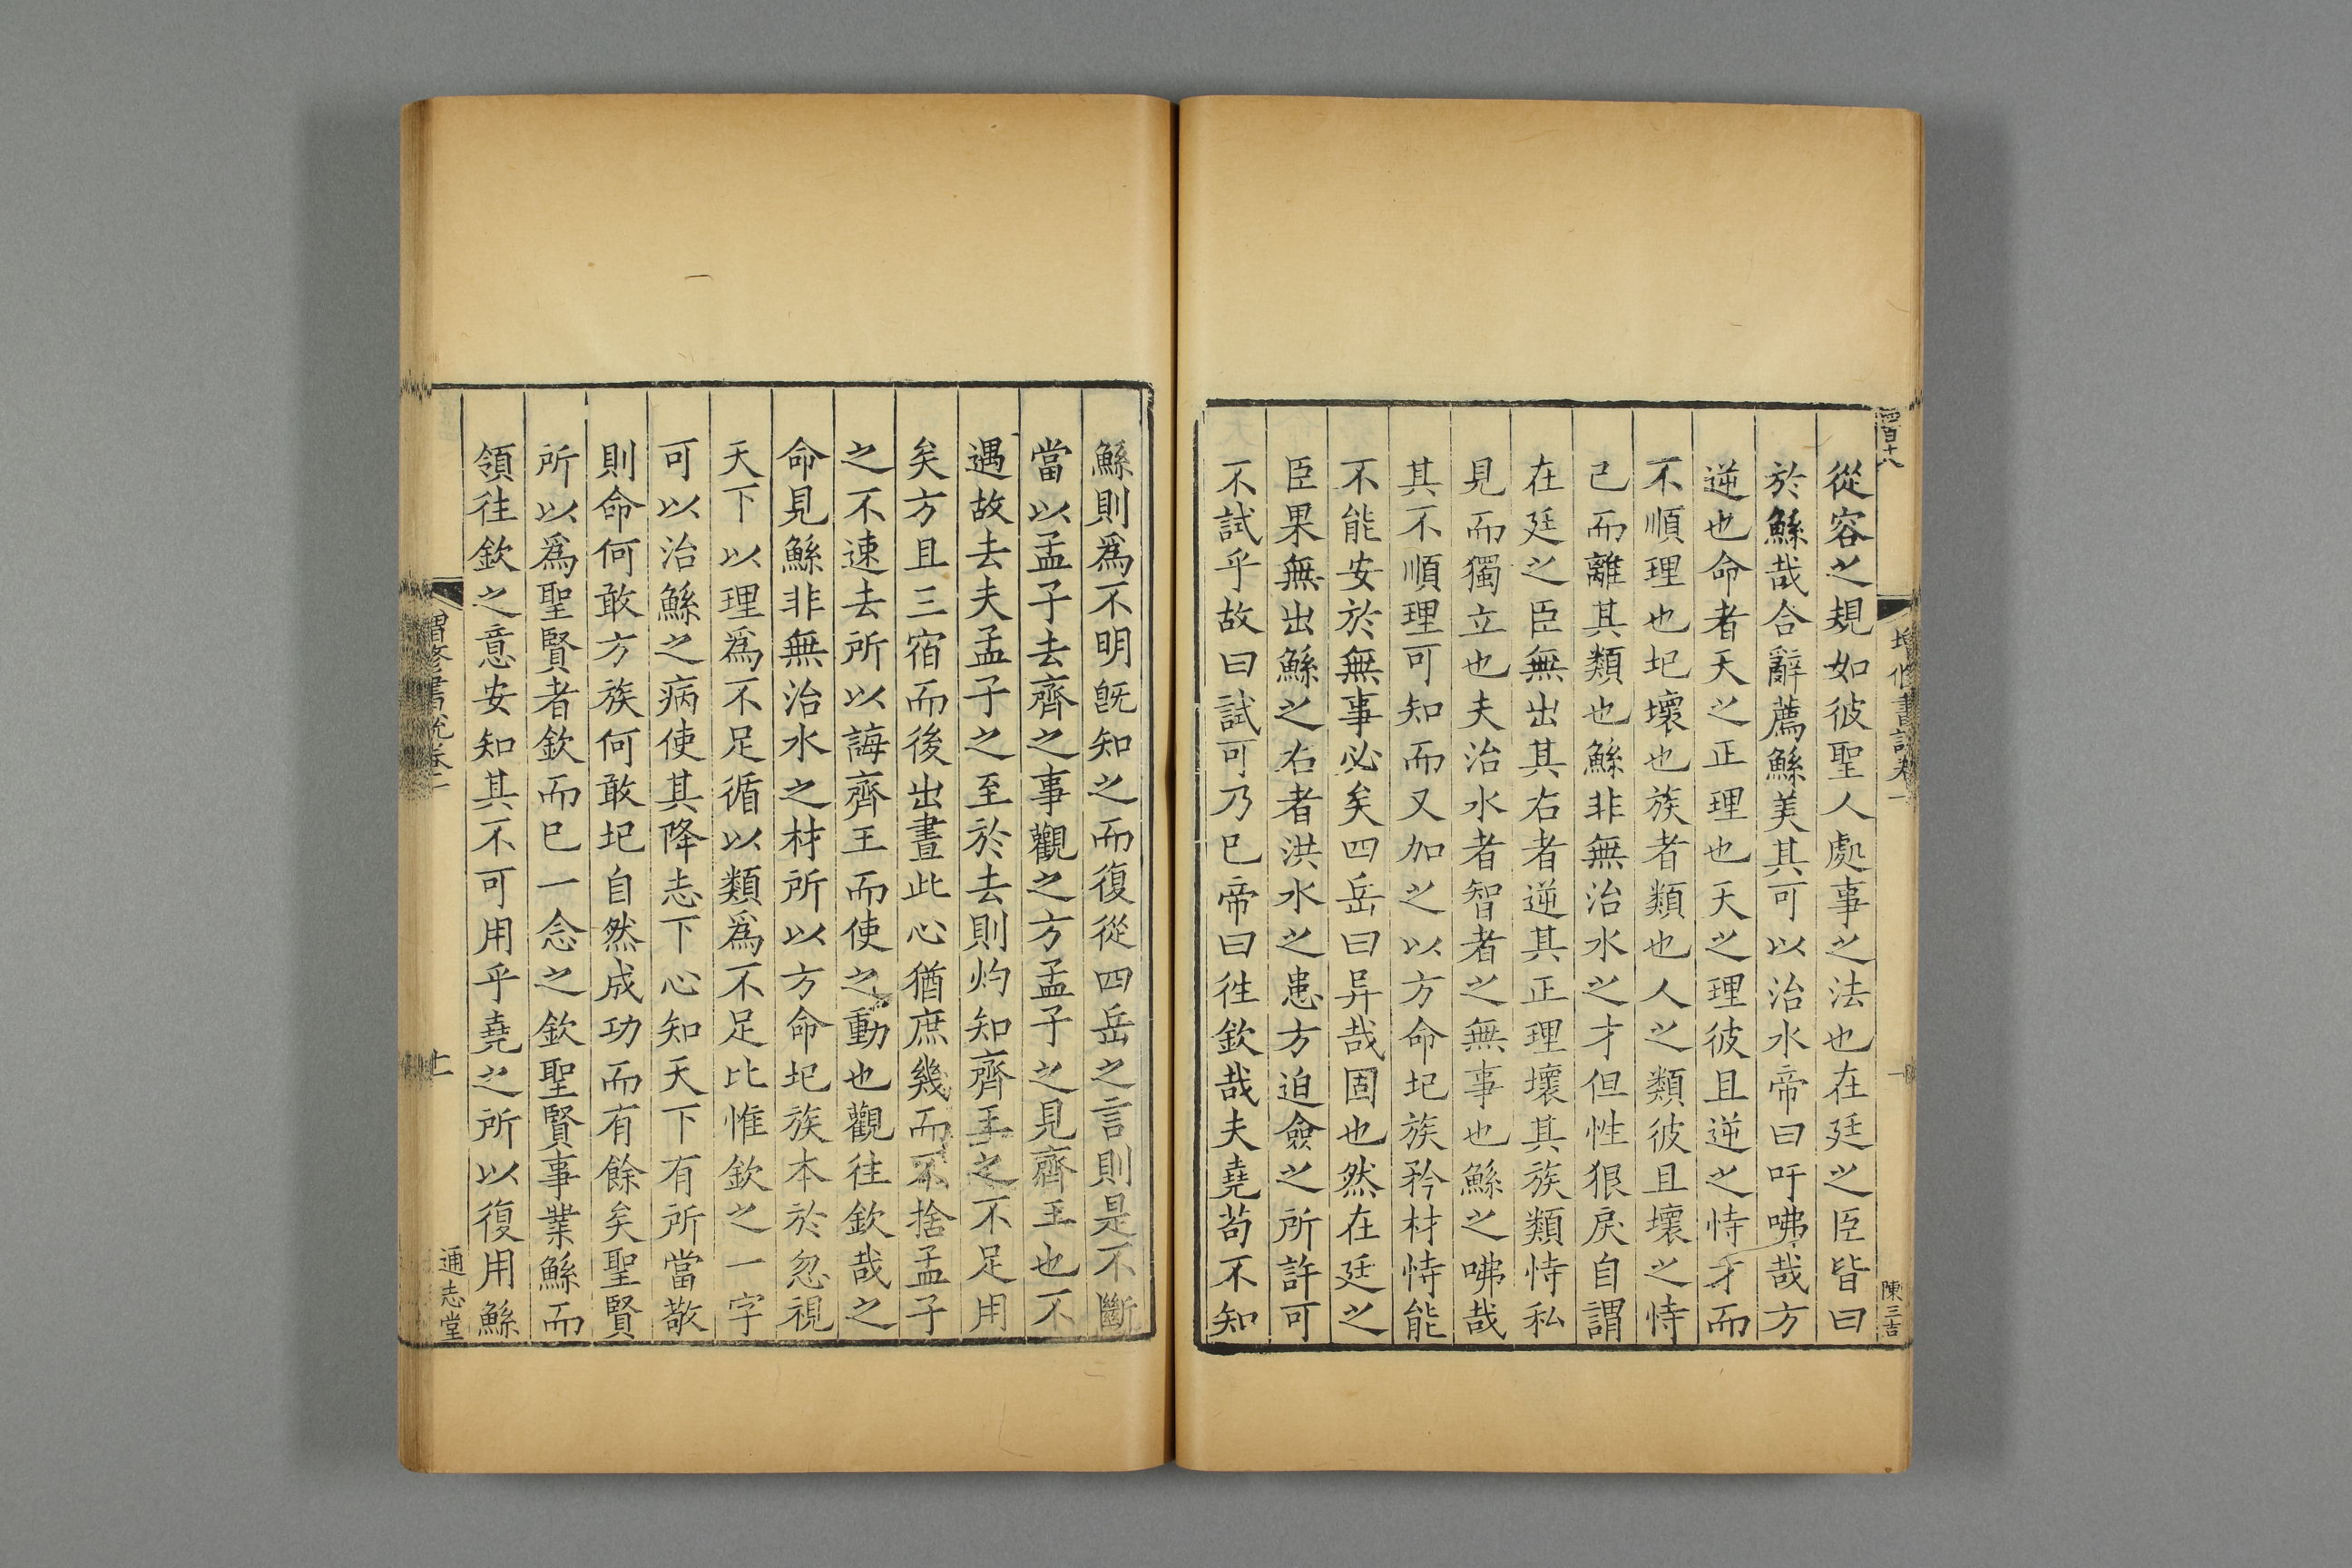 四百十八
從容之規如彼聖人處事之法也在廷之臣皆曰
於鯀哉合辭薦鯀美其可以治水帝曰吁咈哉方
逆也命者天之正理也天之理彼且逆之恃才而
不順理也圮壞也族者類也人之類彼且壞之恃
己而離其類也鯀非無治水之才但性狠戾自謂
在廷之臣無出其右者逆其正理壞其族類恃私
見而獨立也夫治水者智者之無事也鯀之咈哉
其不順理可知而又加之以方命圮族矜材恃能
不能安於無事必矣四岳曰异哉固也然在廷之
臣果無出鯀之右者洪水之患方迫僉之所許可
不試乎故曰試可乃已帝曰往欽哉夫堯苟不知
陳三吉
鯀則爲不明旣知之而復從四岳之言則是不斷
當以孟子去齊之事觀之方孟子之見齊王也不
遇故去夫孟子之至於去則灼知齊王之不足用
矣方且三宿而後出晝此心猶庶幾而不捨孟子
之不速去所以誨齊王而使之動也觀往欽哉之
命見鯀非無治水之材所以方命圮族本於忽視
天下以理爲不足循以類爲不足比惟欽之一字
可以治鯀之病使其降志下心知天下有所當敬
則命何敢方族何敢圮自然成功而有餘矣聖賢
所以爲聖賢者欽而已一念之欽聖賢事業鯀而
領往欽之意安知其不可用乎堯之所以復用鯀
增修書說卷一
十一
通志堂